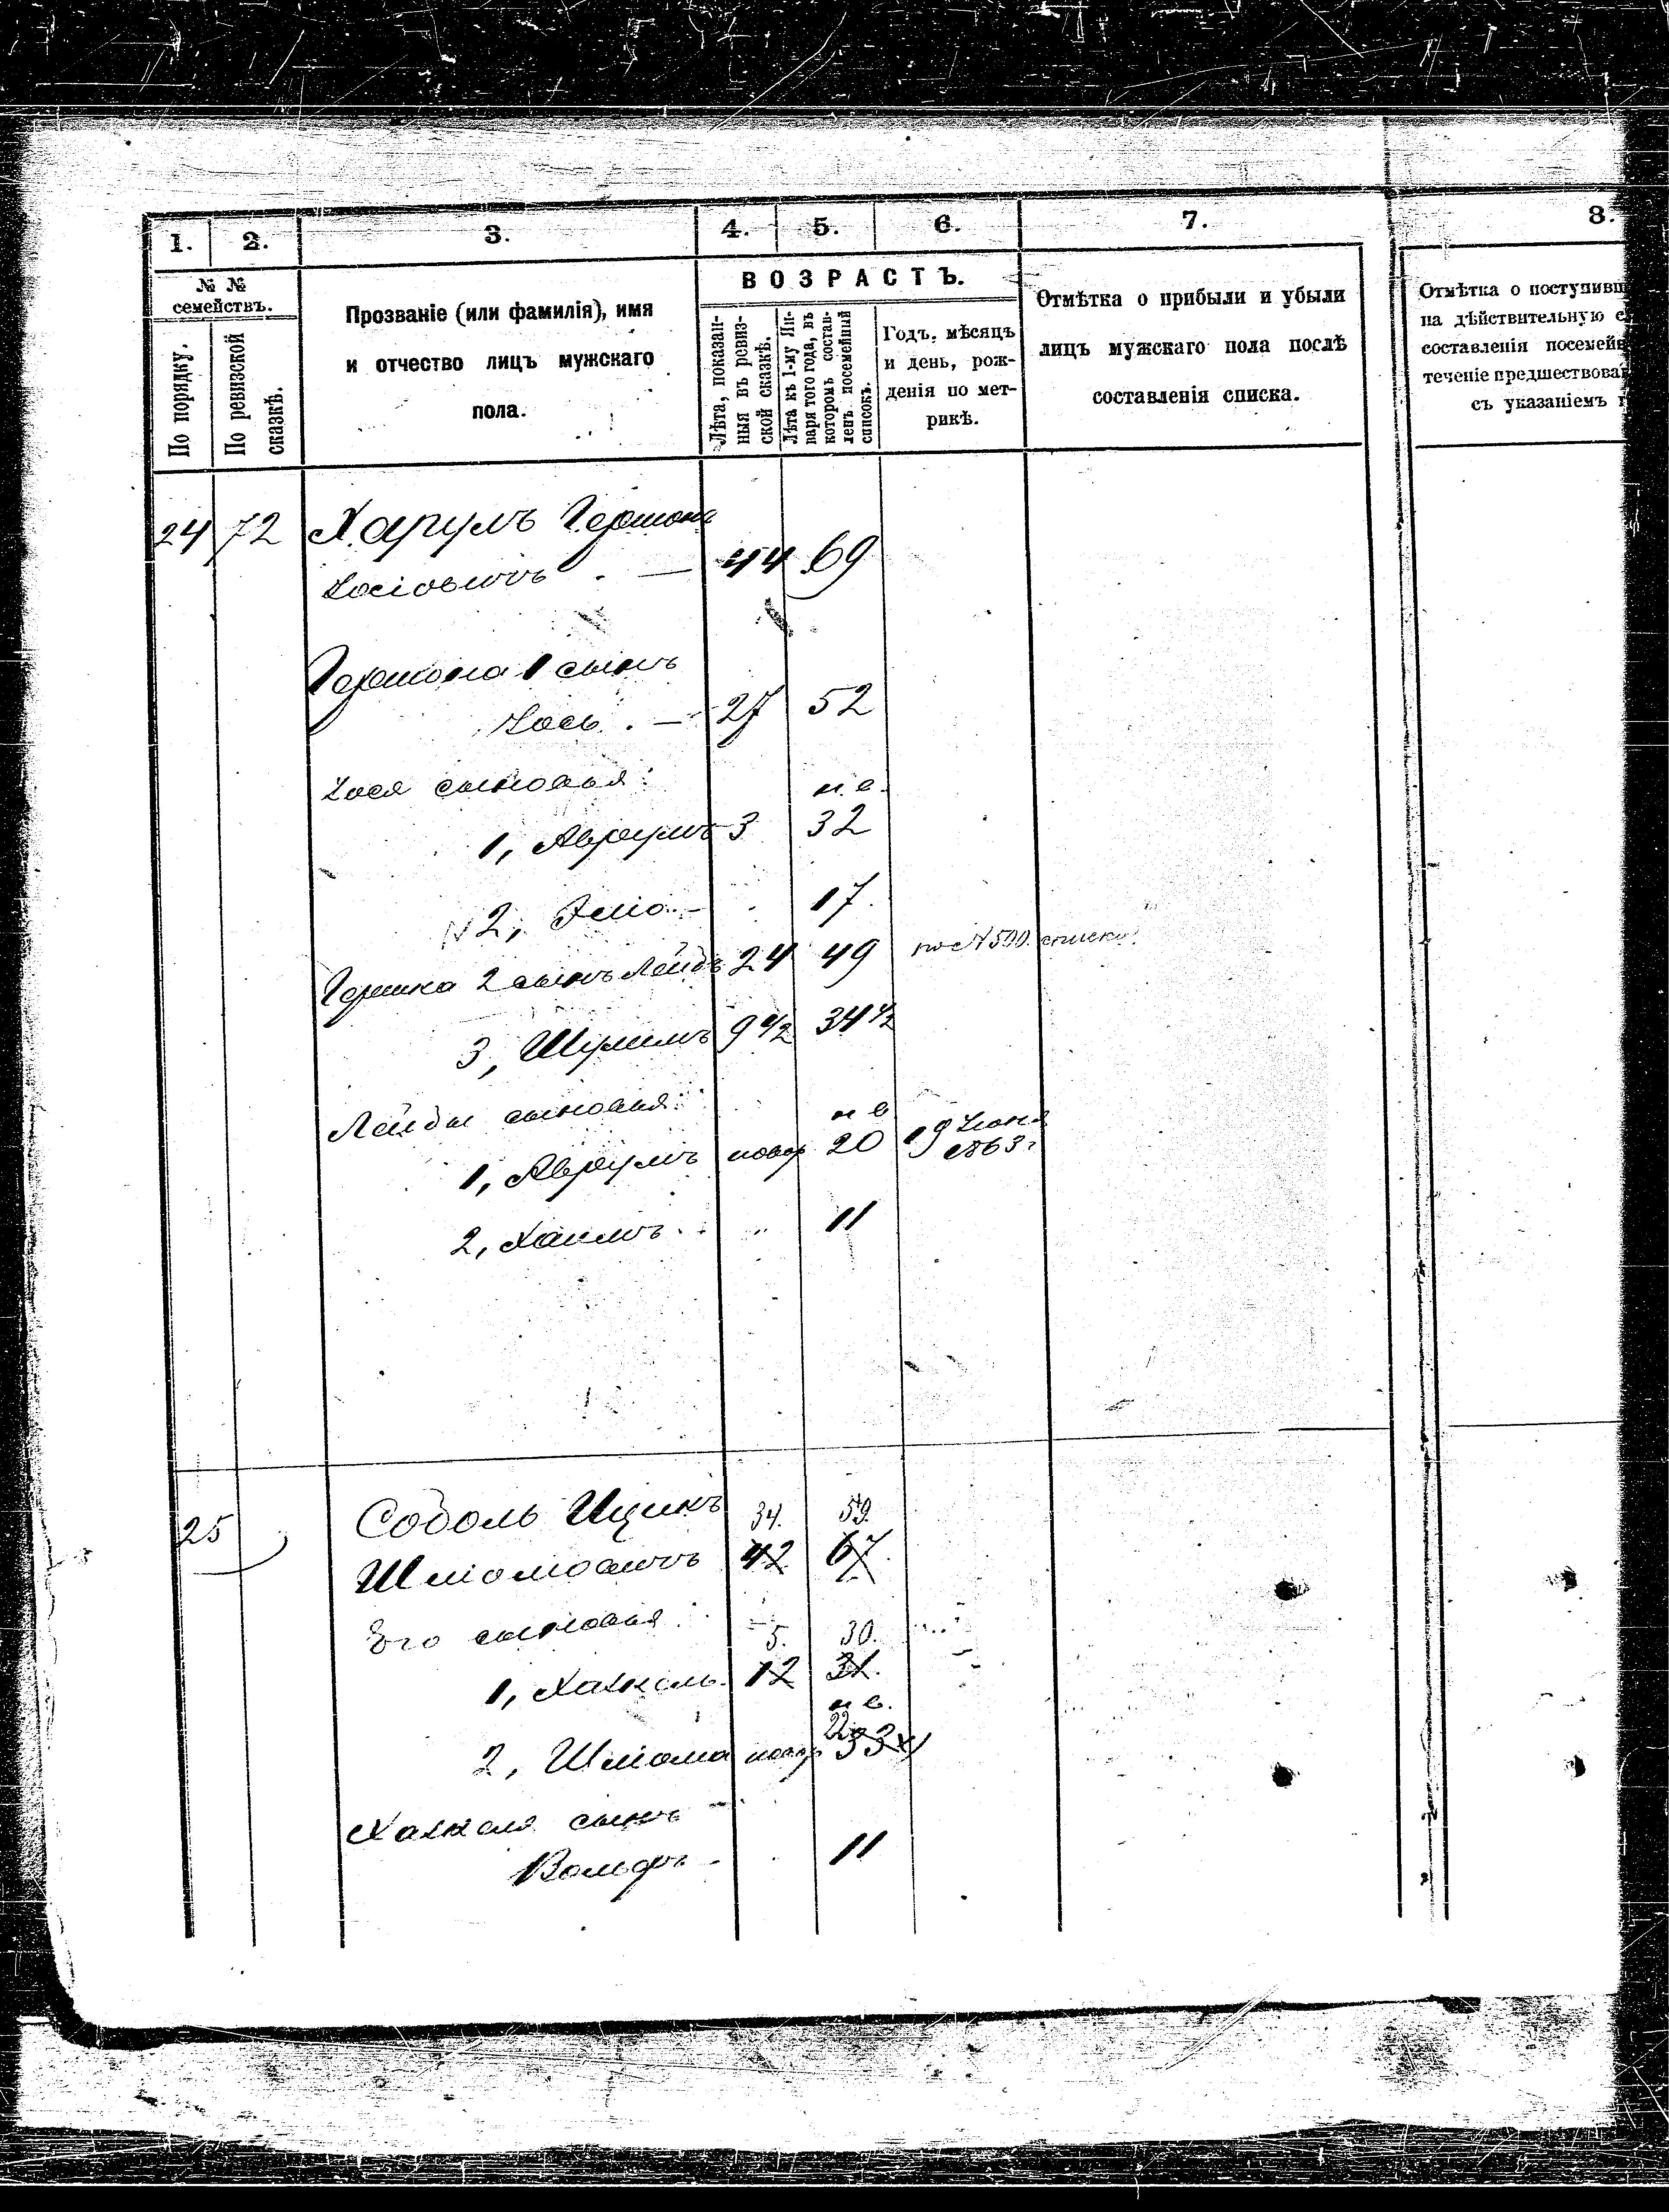 1. 2. 3. 4. 5. 6. 7. 8.
№ №
семействъ.
По порядку.
По ревизской
сказкѣ.
Прозваніе (или фамилія), имя
и отчество лицъ мужскаго
пола.
ВОЗРАСТЪ.
Лѣта, показан-
ныя въ ревиз-
ской сказкѣ.
Лѣта къ 1-му Ян-
варя того года, въ
которомъ состав-
ленъ посемейный
списокъ.
Годъ, мѣсяцъ
и день, рож-
денія по мет-
рикѣ.
Отмѣтка о прибыли и убыли
лицъ мужскаго пола послѣ
составленія списка.
Отмѣтка о поступивш
на дѣйствительную с
составленія посемейн
теченіе предшествова
съ указаніемъ г
24 72 Харумъ Гершонъ
Іосіовичъ . — 44 69
Гершона 1 сынъ
Іось . — 27 52
Іося сыновья: н. в.
1, Аврумъ 3 32
2, Эліо. — 17.
Гершка 2 сынъ Лейба 24 49 по № 500 списка.
3, Шулимъ 9 1/2 34 1/2
Лейбы сыновья: н в
1, Аврумъ новор 20 19 Іюня
1863 г
2, Хаимъ . 11
25 Соболь Ицикъ 34. 59.
Шліомовичъ 42 67.
Его сыновья: 5. 30.
1, Хацкель. 12 31.
н в.
22
2, Шліома новор 33
Хацкеля сынъ
Вольфъ - 11